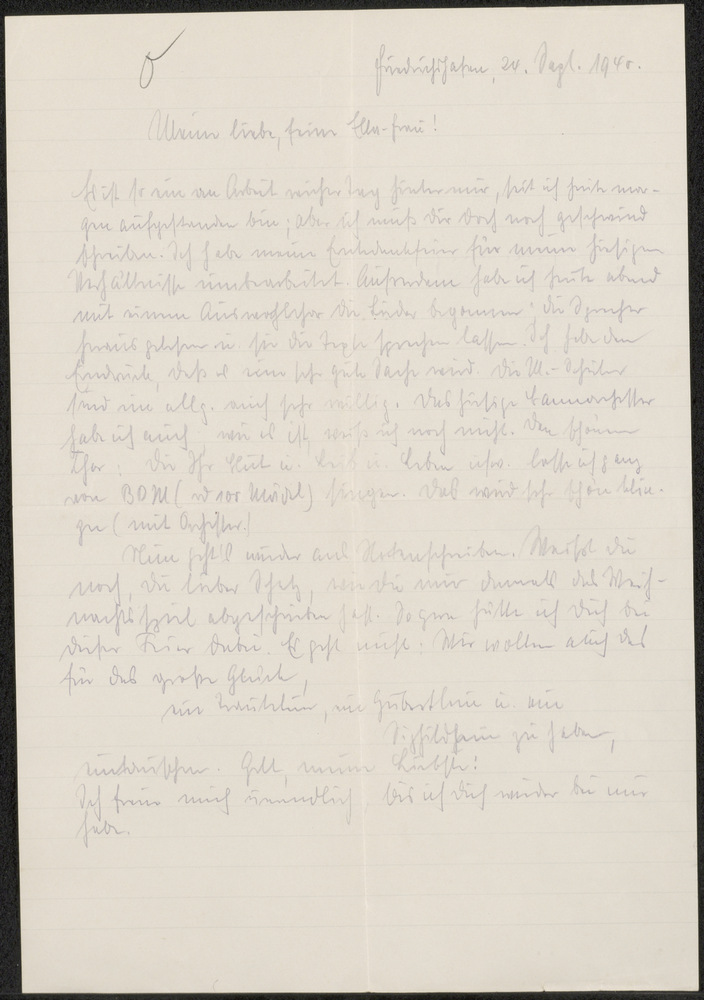 Friedrichshafen, 20. Sept. 1940.
Meine liebe, feine Ella-Frau!
Es ist so ein an Arbeit reicher Tag hinter mir, seit ich heute mor-
gen aufgestanden bin; aber ich muß Dir doch noch geschwind
schreiben. Ich habe meine Erntedankfeier für meine hiesigen
Verhältnisse umbearbeitet. Außerdem habe ich heute abend
mit einem Auswahlchor die Lieder begonnen, die Sprecher
herausgelesen u. sie die Texte sprechen lassen. Ich habe den
Eindruck, daß es eine sehr gute Sache wird. Die M.-Schüler
sind im allg. auch sehr willig. Das hiesige Bannorchester
habe ich auch wie es ist, weiß ich noch nicht. Den schönen
Chor: Die Ihr Blut u. Leib u. Leben usw. lasse ich ganz
vom BDM (Mädel) singen. Das wird sehr schön klin-
gen (mit Orchester!)
Nun geht's wieder ans Notenschreiben. Weißt Du
noch, Du lieber Schatz, wie Du mir damals das Weih-
nachtsspiel abgeschrieben hast. So gern hätte ich Dich bei
dieser Feier dabei. Es geht nicht: Wir wollen auch das
für das große Glück,
ein Trautelein, ein Gübertlein u. ein
zu haben,
eintauschen. Gelt, meine Liebste!
Ich freue mich unendlich, bis ich Dich wieder bei mir
habe.